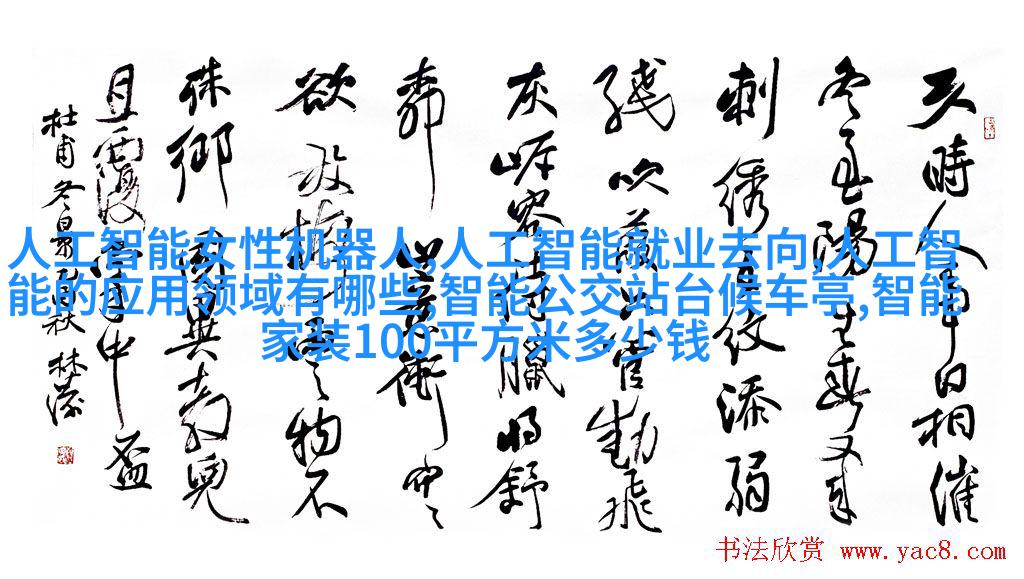 人工智能女性机器人,人工智能就业去向,人工智
能的应用领域有哪些,智能公交站台候车亭,智能
家装100平方米多少钱
天時人事日相催
冬至陽生春又来
刺绣五纹添弱
线吹葭六管動飛
灰岸容待臘将舒
山意衝寒
欲放梅雲物不
殊鄉國異教兒
且覆掌中盃
杜甫冬景 秋 林
书法欣赏 www.yac8.com